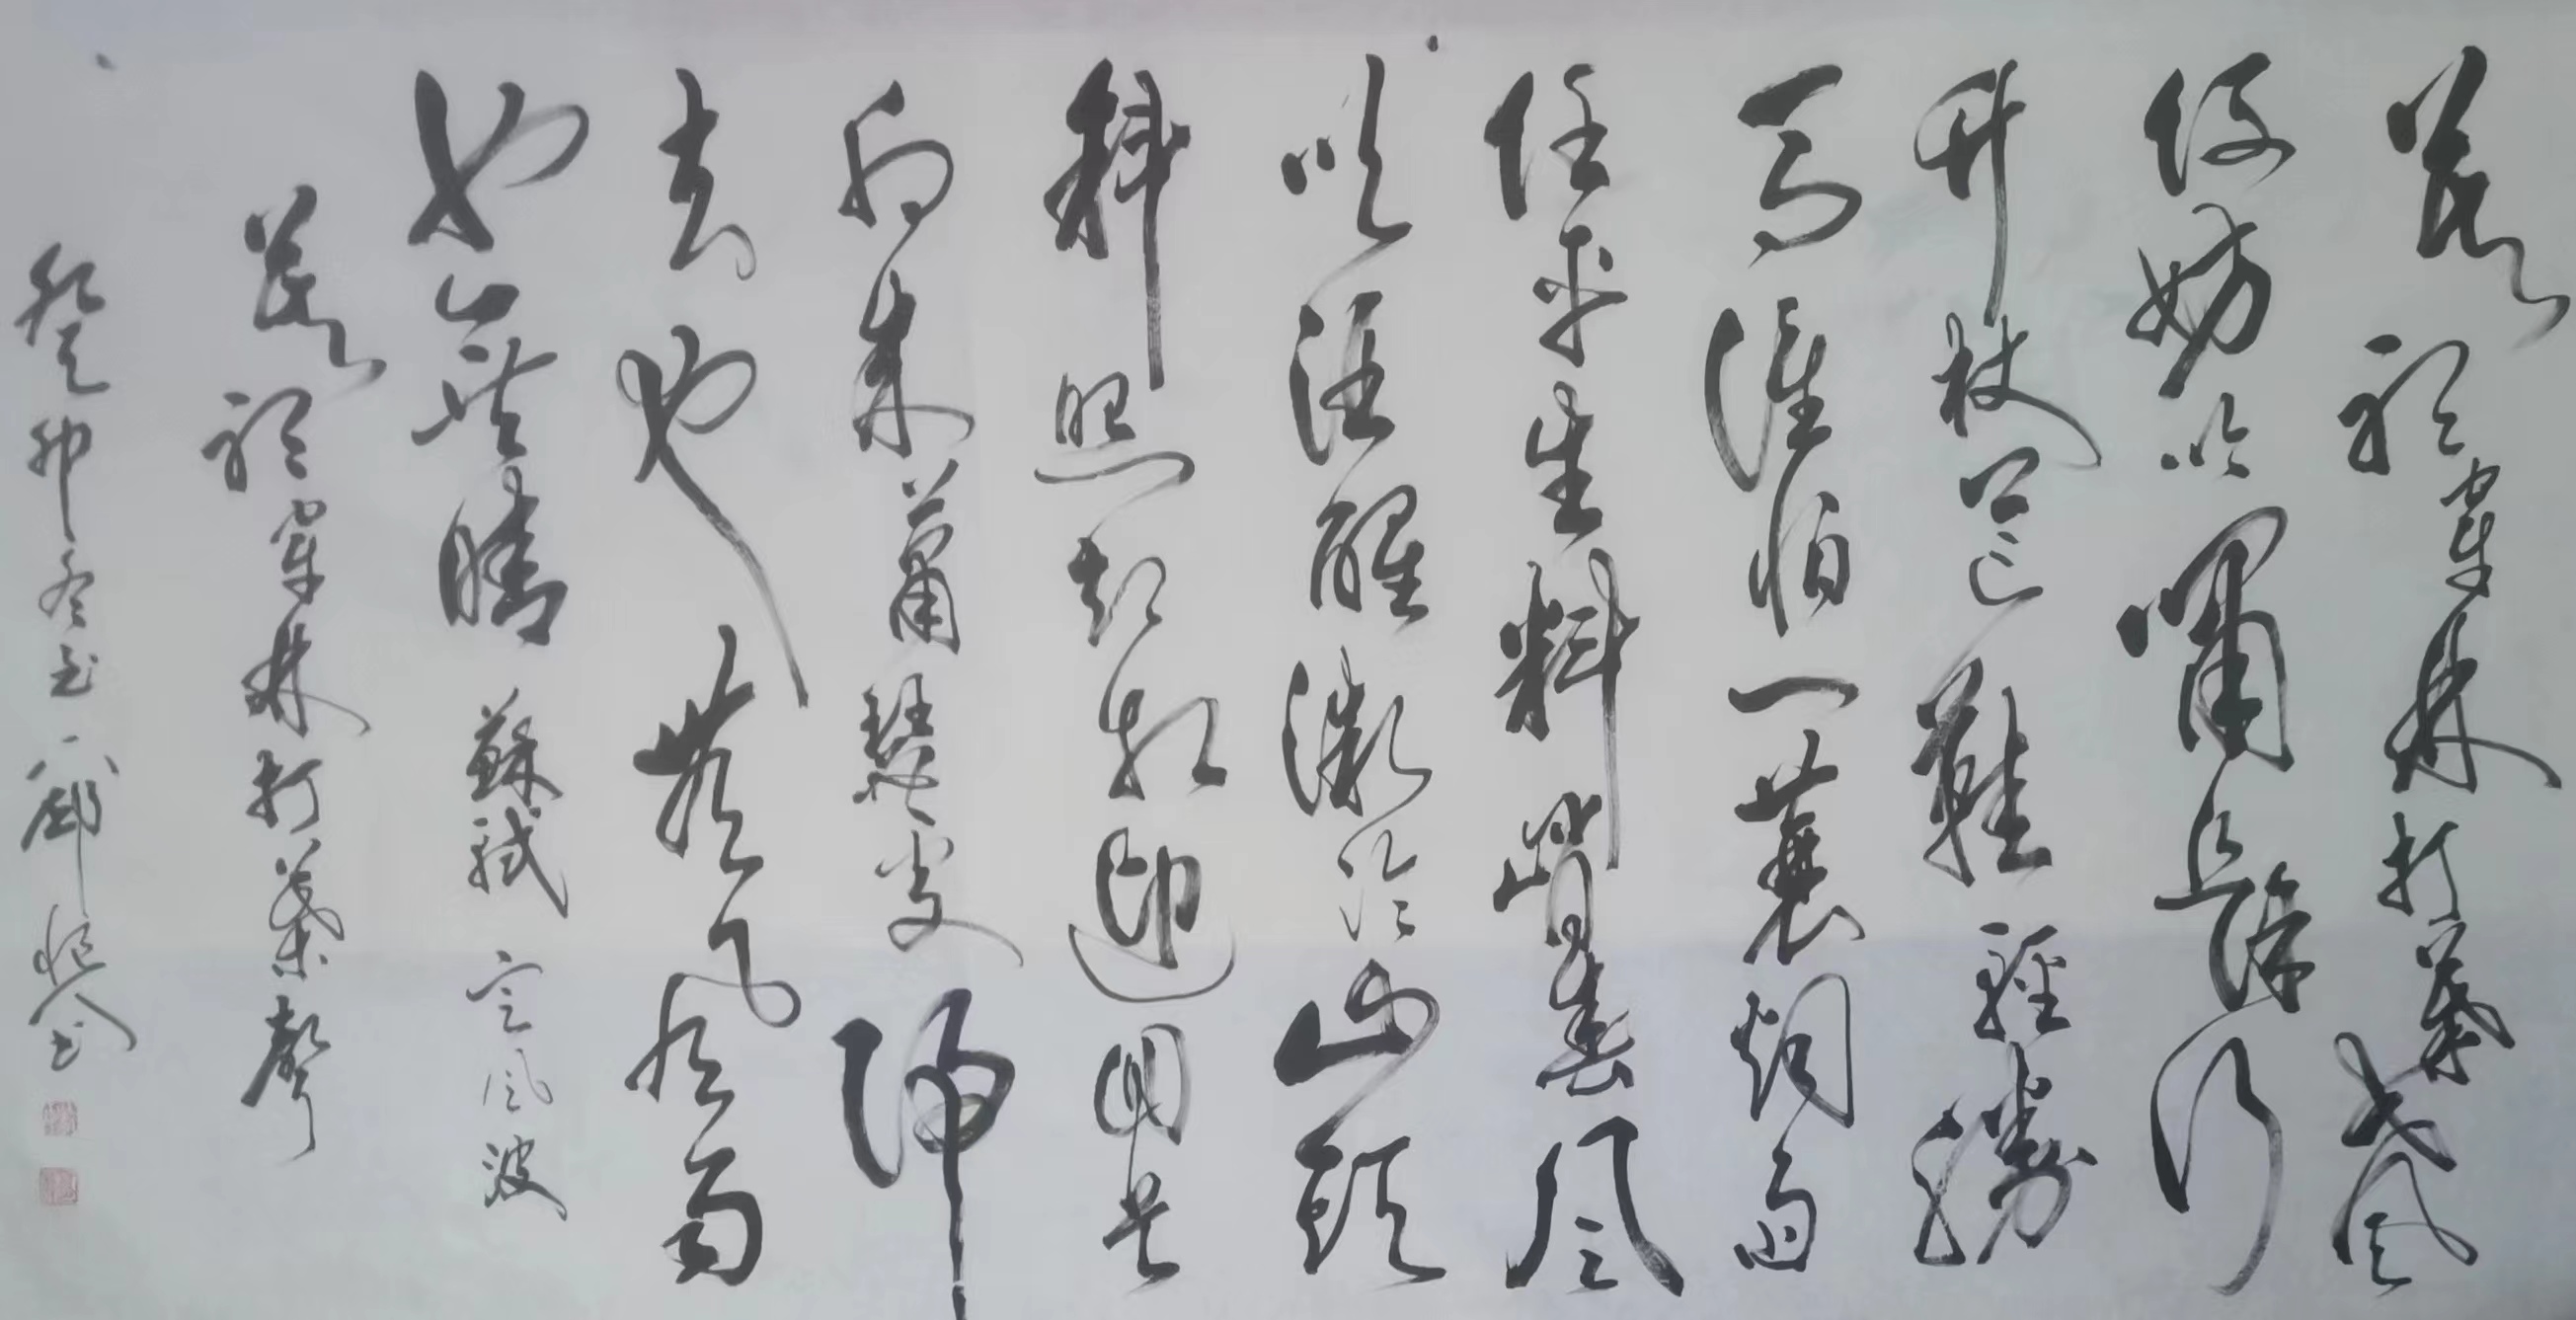 莫聽穿林打葉
何妨吟嘯且徐行
竹杖芒鞋輕勝
馬誰怕一蓑烟雨
任平生料峭春風
吹酒醒微冷山頭
斜照却相迎回首
向来蕭瑟處歸
去也無风雨
也無晴 蘇軾 定風波
莫聽穿林打葉聲
癸卯冬 書